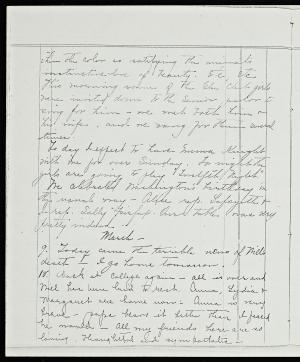 than the color is satisfying the animals
instinctive love of beauty, Etc. Etc.
This morning some of the Glee Club girls
were invited down to the Senior parlor to
sing for him - we met both him &
his wife, and we sang for them several
times.
To day I expect to have Emma Knight
with me for over Sunday. To-night the
girls are going to play "Twelfth Night"
We celebrated Washington's birthday in
the usual way -
rep. Sally Fairfax. were very
pretty indeed.
March -
9. To day came the terrible news of Will's
death - I go home tomorrow.
18. Back at College again - all is over and
Will has been laid to rest. Anna, Lydia &
Margaret are home now - Anna is very
brave - papa bears it better than I feared
he would - All my friends here are so
loving, thoughtful and sympathetic -